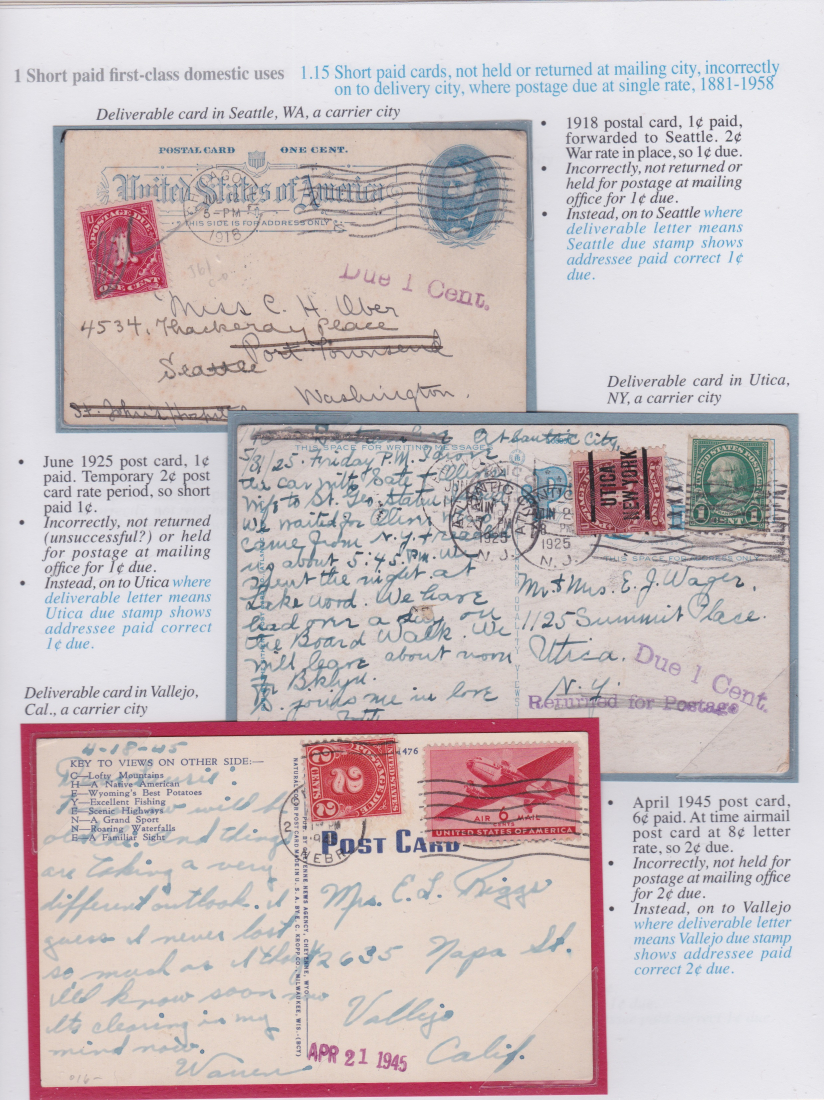 1 Short paid first-class domestic uses
1.15 Short paid cards, not held or returned at mailing city, incorrectly
on to delivery city, where postage due at single rate, 1881-1958
Deliverable card in Seattle, WA, a carrier city
POSTAL CARD ONE CENT.
United States of America
THIS SIDE IS FOR ADDRESS ONLY
5-PM
1918
POSTAGE DUE
ONE CENT
Due 1 Cent.
Miss C. H. Ober
4534, Thackeray Place
Port Townsend
Seattle
Washington.
St. John's Hospital
• 1918 postal card, 1¢ paid,
forwarded to Seattle. 2¢
War rate in place, so 1¢ due.
• Incorrectly, not returned or
held for postage at mailing
office for 1¢ due.
• Instead, on to Seattle where
deliverable letter means
Seattle due stamp shows
addressee paid correct 1¢
due.
Deliverable card in Utica,
NY, a carrier city
• June 1925 post card, 1¢
paid. Temporary 2¢ post
card rate period, so short
paid 1¢.
• Incorrectly, not returned
(unsuccessful?) or held
for postage at mailing
office for 1¢ due.
• Instead, on to Utica where
deliverable letter means
Utica due stamp shows
addressee paid correct
1¢ due.
Atlantic City,
THIS SPACE FOR WRITING MESSAGE
5/8/25. Friday P.M.
the car
to St. Geo.
We waited for
came from N.Y. +
about 5:45 P.M. We
spent the night at
Lakewood. We have
had over a day on
the Board Walk. We
will leave about noon
for Bklyn.
joins me in love
ATLANTIC
1925
N. J.
UTICA
NEW YORK
UNITED STATES POSTAGE
1 CENT 1
THIS SPACE FOR ADDRESS ONLY
Mr & Mrs. E. J. Wager,
1125 Summit Place.
Utica.
N.Y.
Due 1 Cent.
Returned for Postage
Deliverable card in Vallejo,
Cal., a carrier city
4-18-45
KEY TO VIEWS ON OTHER SIDE:—
C—Lofty Mountains
H—A Native American
E—Wyoming's Best Potatoes
Y—Excellent Fishing
E—Scenic Highways
N—A Grand Sport
N—Roaring Waterfalls
E—A Familiar Sight
will be
and things
are taking a very
different outlook. I
guess I never lost
so much as I thot
I'll know soon now
Its clearing in my
mind now.
Warren
016-
NATURAL COLOR POST CARD MADE IN U. S. A. BY E. C. KROPP CO., MILWAUKEE, WIS.—(SCT)
PUB. BY CHEYENNE NEWS AGENCY, CHEYENNE, WYO.
476
2 CENTS
POSTAGE DUE
UNITED STATES
NEBR
AIR 6 CENTS MAIL
UNITED STATES OF AMERICA
POST CARD
Mrs. E. L. Riggs
2635 Napa St.
Vallejo
Calif.
APR 21 1945
• April 1945 post card,
6¢ paid. At time airmail
post card at 8¢ letter
rate, so 2¢ due.
• Incorrectly, not held for
postage at mailing office
for 2¢ due.
• Instead, on to Vallejo
where deliverable letter
means Vallejo due stamp
shows addressee paid
correct 2¢ due.